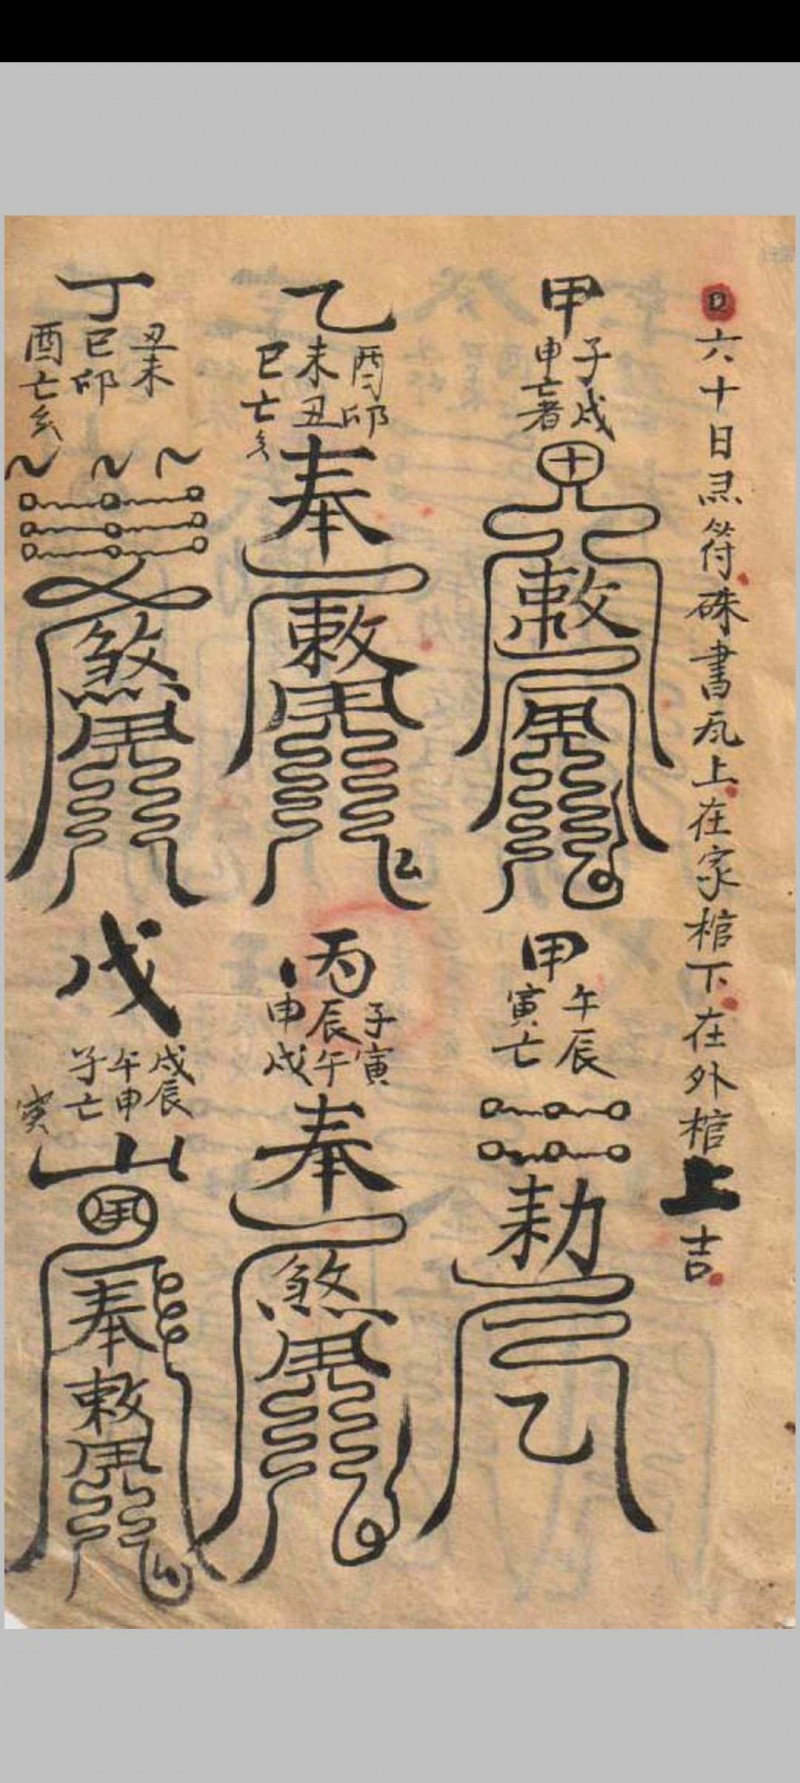 六十日灵符硃書瓦上在家棺下在外棺上吉
甲
子戌
申亡者
敕
乙
酉卯
未丑
巳亡亥
奉
敕
丁
丑未
巳卯
酉亡亥
煞
甲
午辰
寅亡
勅
乙
丙
子寅
辰午
申戌
奉
煞
戊
戌辰
午申
子亡
寅
山
奉
敕